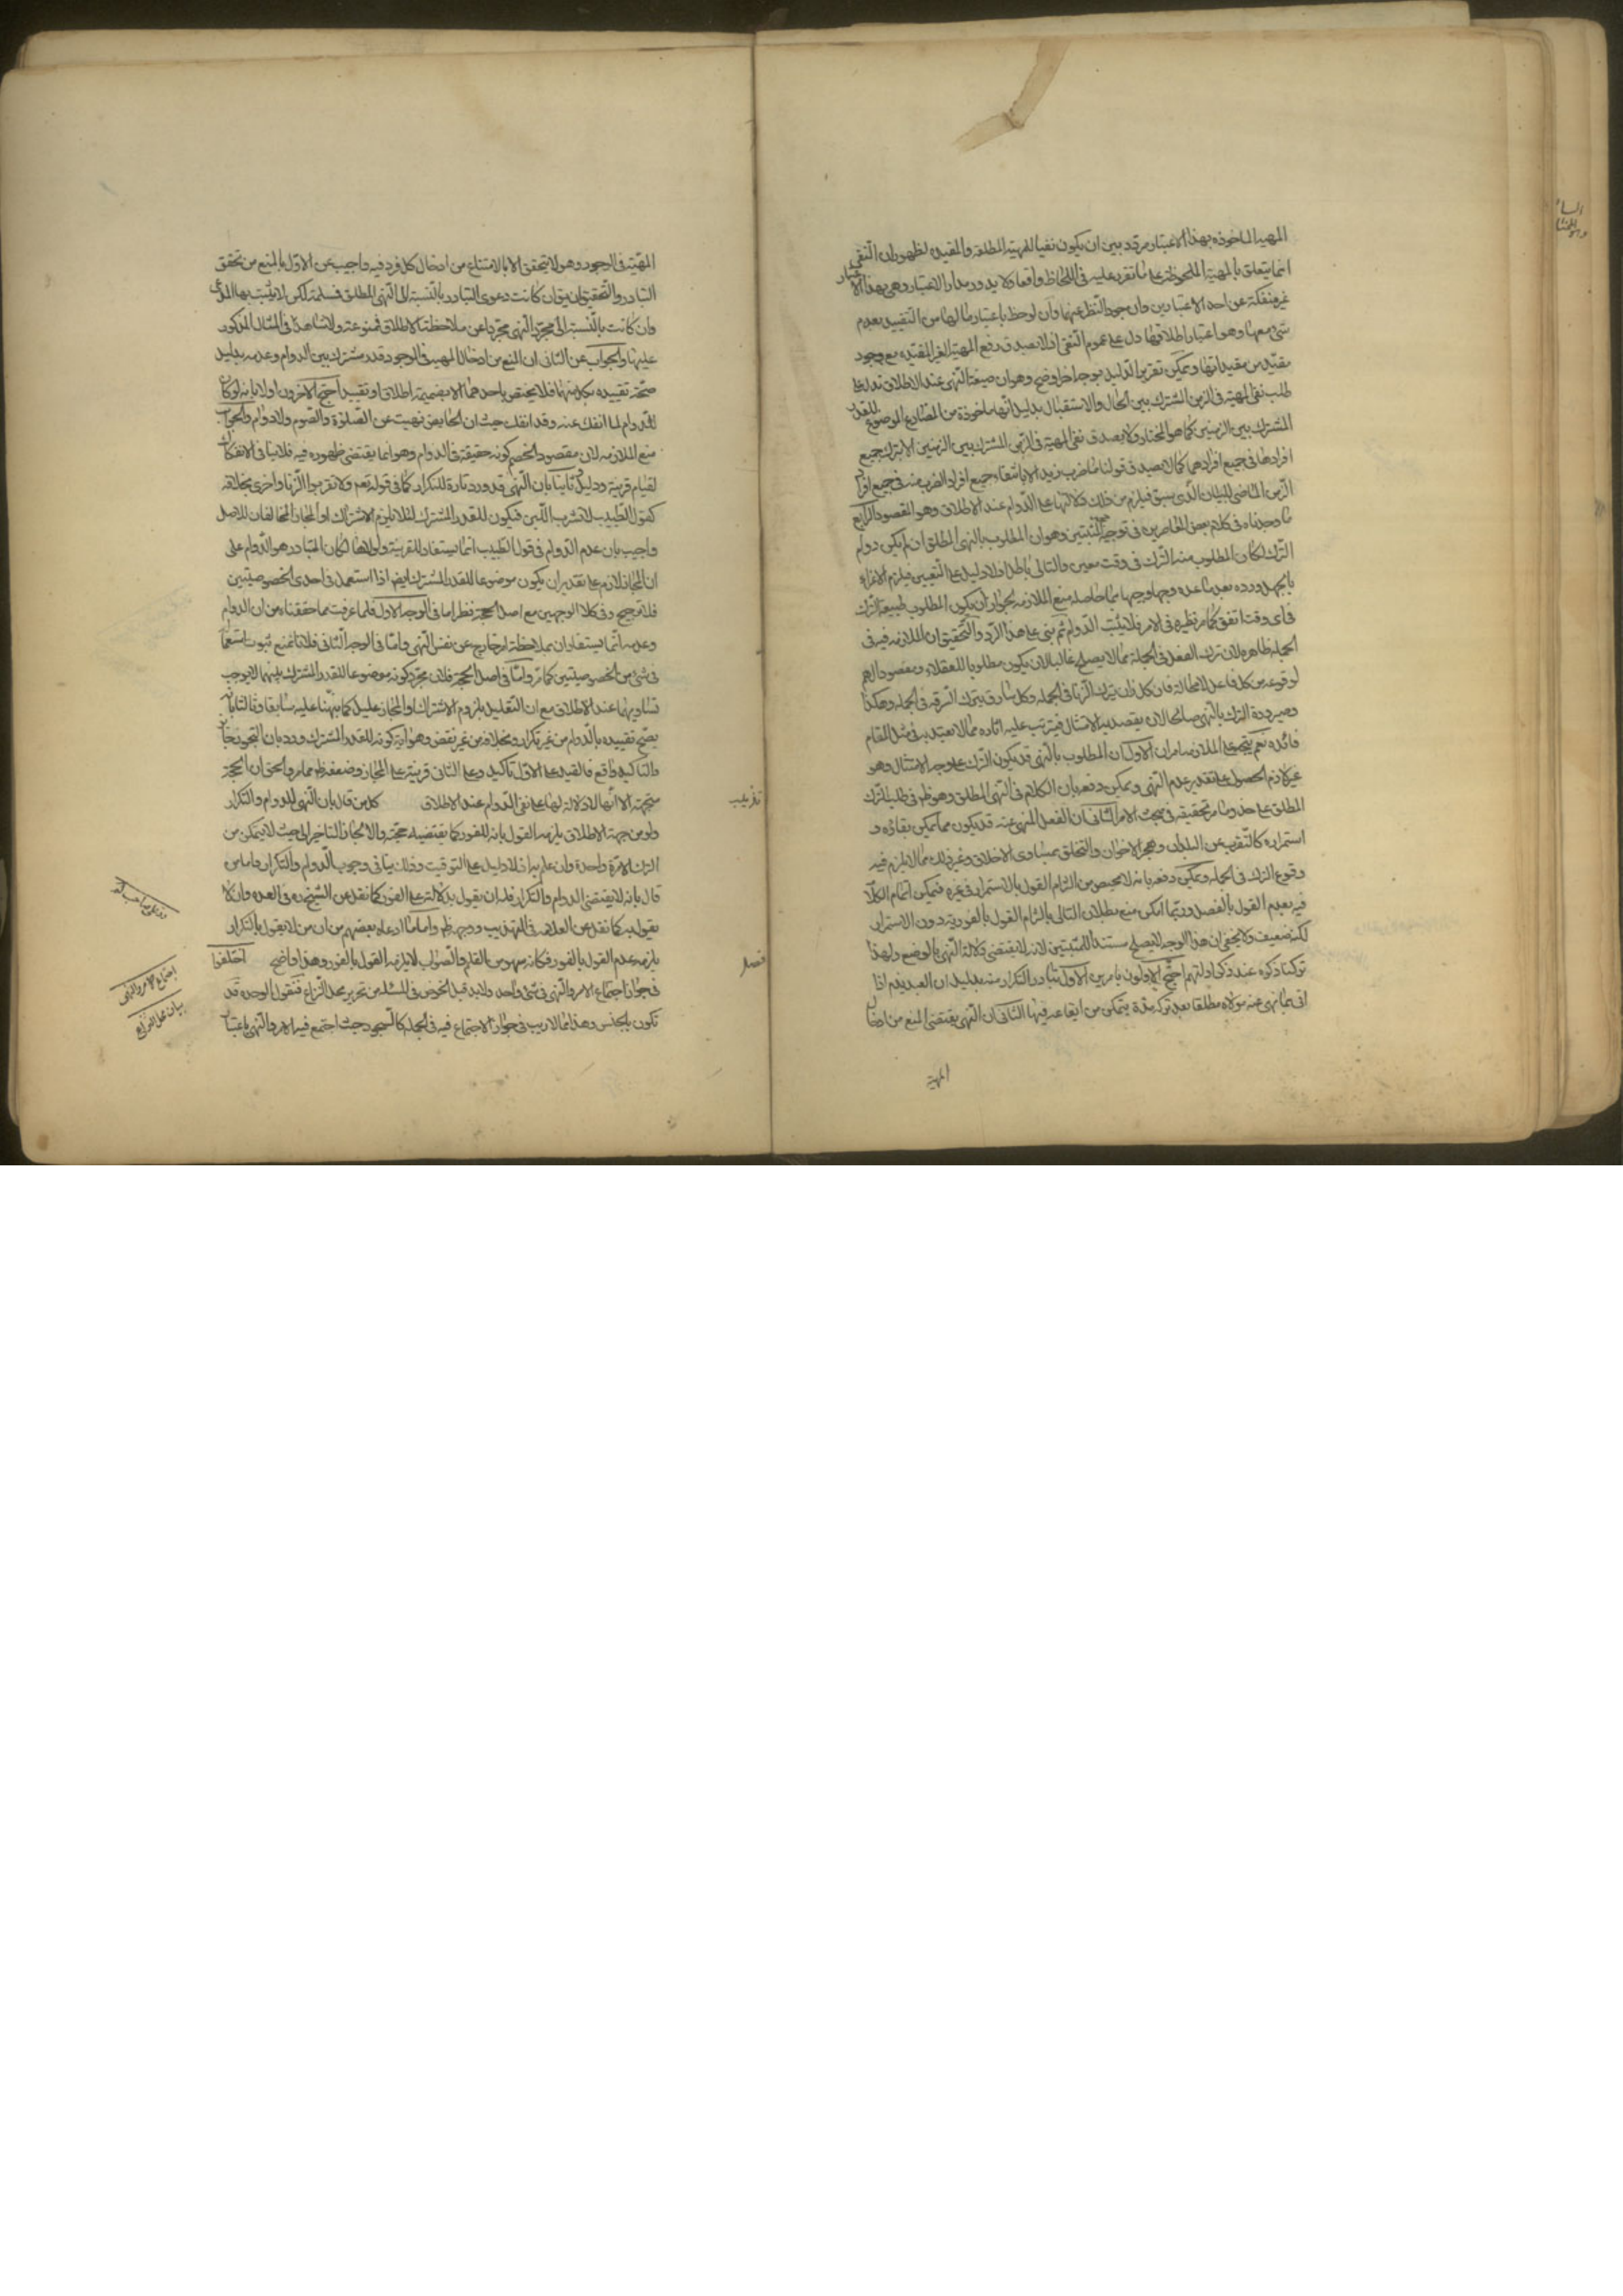 المهية الماخوذة بهذا الاعتبار مردد بين ان يكون نفيا للمهية المطلقة والمقيدة لظهور ان النفى
انما يتعلق بالمهية الملحوظة على ما تقرر عليه فى اللحاظ واقعا ولا يدور مدار الاعتبار وهى بهذا الاعتبار
غير منفكة عن احد الاعتبارين وان جرد النظر عنهما وان لوحظ باعتبار ما لها من التقييد بعدم
شىء معها وهو اعتبار اطلاقها دل على عموم النفى اذ لا يصدق رفع المهية الغير المقيدة مع وجود
مقيد من مقيداتها ويمكن تقرير الدليل بوجه اخر اوضح وهو ان صيغة النهى عند الاطلاق تدل على
طلب نفى المهية فى الزمن المشترك بين الحال والاستقبال بدليل انها ماخوذة من المضارع الموضوع للقدر
المشترك بين الزمنين كما هو المختار ولا يصدق نفى المهية فى الزمن المشترك بين الزمنين الا بترك جميع
افرادها فى جميع افرادهما كما لا يصدق قولنا ما ضرب زيد الا بانتفاء جميع افراد الضرب منه فى جميع افراد
الزمن الماضى للبيان الذى سبق فيلزم من ذلك دلالتها على الدوام عند الاطلاق وهو المقصود الرابع
ما وجدناه فى كلام بعض المعاصرين فى توجيه المثبتين وهو ان المطلوب بالنهى المطلق ان لم يكن دوام
الترك لكان المطلوب منه الترك فى وقت معين والتالى باطل اذ لا دليل على التعيين فيلزم الاغراء
بالجهل ورده بعد ما عده وجها وجيها بما حاصله منع الملازمة لجواز ان يكون المطلوب طبيعة الترك
فى اى وقت اتفق كما مر نظيره فى الامر فلا يثبت الدوام ثم بنى على هذا الرد والتحقيق ان الملازمة فيه فى
الجملة ظاهرة لان ترك الفعل فى الجملة مما لا يصلح غالبا لان يكون مطلوبا للعقلاء ومقصودا لهم
لوقوعه من كل فاعل لا محالة فان كل زان يترك الزنا فى الجملة وكل سارق يترك السرقة فى الجملة وهكذا
وصيرورة الترك بالنهى صالحا لان يقصد به الامتثال فيترتب عليه اثاره مما لا يعتد به فى مثل المقام
فائدة نعم يتجه على الملازمة امران الاول ان المطلوب بالنهى قد يكون الترك على وجه الامتثال وهو
غير لازم الحصول على تقدير عدم النهى ويمكن دفعه بان الكلام فى النهى المطلق وهو ظاهر فى طلب الترك
المطلق على حذو ما مر تحقيقه فى مبحث الامر الثانى ان الفعل المنهى عنه قد يكون مما يمكن بقاؤه و
استمراره كالتغرب عن البلدان وهجر الاخوان والتخلق بمساوى الاخلاق وغير ذلك مما لا يلزم فيه
وقوع الترك فى الجملة ويمكن دفعه بانه لا محيص من التزام القول بالاستمرار فى غيره فيمكن اتمام الكلام
فيه بعدم القول بالفصل وربما امكن منع بطلان التالى بالتزام القول بالفورية دون الاستمرار
لكنه ضعيف ولا يخفى ان هذا الوجه لا يصلح مستندا للمثبتين لانه لا يقتضى دلالة النهى بالوضع ولهذا
تركنا ذكره عند ذكر ادلتهم احتج الاولون بامرين الاول تبادر التكرار منه بدليل ان العبد يذم اذا
اتى بما نهى عنه مولاه مطلقا بعد تركه مدة يتمكن من ايقاعه فيها الثانى ان النهى يقتضى المنع من ادخال
المهية
المهية فى الوجود وهو لا يتحقق الا بالامتناع من ادخال كل فرد فيه واجيب عن الاول بالمنع من تحقق
التبادر والتحقيق ان يق ان كانت دعوى التبادر بالنسبة الى النهى المطلق فمسلمة لكن لا يثبت بها المدعى
وان كانت بالنسبة الى مجرد النهى مجردا عن ملاحظة الاطلاق فممنوعة ولا شاهد فى المثال المذكور
عليها والجواب عن الثانى ان المنع من ادخال المهية فى الوجود قدر مشترك بين الدوام وعدمه بدليل
صحة تقييده بكل منهما فلا يختص باحدهما الا بضميمة اطلاق او تقييد احتج الاخرون اولا بانه لو كان
للدوام لما انفك عنه وقد انفك حيث ان الحايض نهيت عن الصلوة والصوم ولا دوام والجواب
منع الملازمة لان مقصود الخصم كونه حقيقة فى الدوام وهو انما يقتضى ظهوره فيه فلا ينافى الانفكاك
لقيام قرينة ودليل وثانيا بان النهى قد ورد تارة للتكرار كما فى قوله تعم ولا تقربوا الزنا واخرى بخلافه
كقول الطبيب لا تشرب اللبن فيكون للقدر المشترك لئلا يلزم الاشتراك او المجاز المخالفان للاصل
واجيب بان عدم الدوام فى قول الطبيب انما يستفاد للقرينة ولولاها لكان المتبادر هو الدوام على
ان المجاز لازم على تقدير ان يكون موضوعا للقدر المشترك ايضا اذا استعمل فى احدى الخصوصيتين
فلا ترجيح وفى كلا الوجهين مع اصل الحجة نظر اما فى الوجه الاول فلما عرفت مما حققناه من ان الدوام
وعدمه انما يستفادان بملاحظة امر خارج عن نفس النهى واما فى الوجه الثانى فلانا نمنع ثبوت استعماله
فى شىء من الخصوصيتين كما مر واما فى اصل الحجة فلان مجرد كونه موضوعا للقدر المشترك بينهما لا يوجب
تساويهما عند الاطلاق مع ان التعليل بلزوم الاشتراك او المجاز عليل كما نبهنا عليه سابقا وثالثا بانه
يصح تقييده بالدوام من غير تكرار وبخلافه من غير نقض وهو اية كونه للقدر المشترك ورد بان التجوز جائز
والتاكيد واقع فالقيد على الاول تاكيد وعلى الثانى قرينة على المجاز وضعفه ظاهر مما مر والحق ان الحجة
متجهة الا انها لا دلالة لها على نفى الدوام عند الاطلاق تذنيب كل من قال بان النهى للدوام والتكرار
ولو من جهة الاطلاق يلزمه القول بانه للفور كما يقتضيه حجته والا لجاز التاخير الى حيث لا يتمكن من
الترك الا مرة واحدة وان علم به اذ لا دليل على التوقيت وذلك ينافى وجوب الدوام والتكرار واما من
قال بانه لا يقتضى الدوام والتكرار فله ان يقول بدلالته على الفور كما نقل عن الشيخ ره فى العدة وان لا
يقول به كما نقل عن العلامة فى التهذيب ووجهه ظاهر واما ما ادعاه بعضهم من ان من لا يقول بالتكرار
يلزمه عدم القول بالفور فكانه سهو من القلم والصواب لا يلزمه القول بالفور وهذا واضح فصل اختلفوا
فى جواز اجتماع الامر والنهى فى شىء واحد ولا بد قبل الخوض فى المسئلة من تحرير محل النزاع فنقول الوحدة قد
تكون بالجنس وهذا مما لا ريب فى جواز الاجتماع فيه فى الجملة كالسجود حيث اجتمع فيه الامر والنهى باعتبار
اجتماع الامر والنهى
بيان محل النزاع